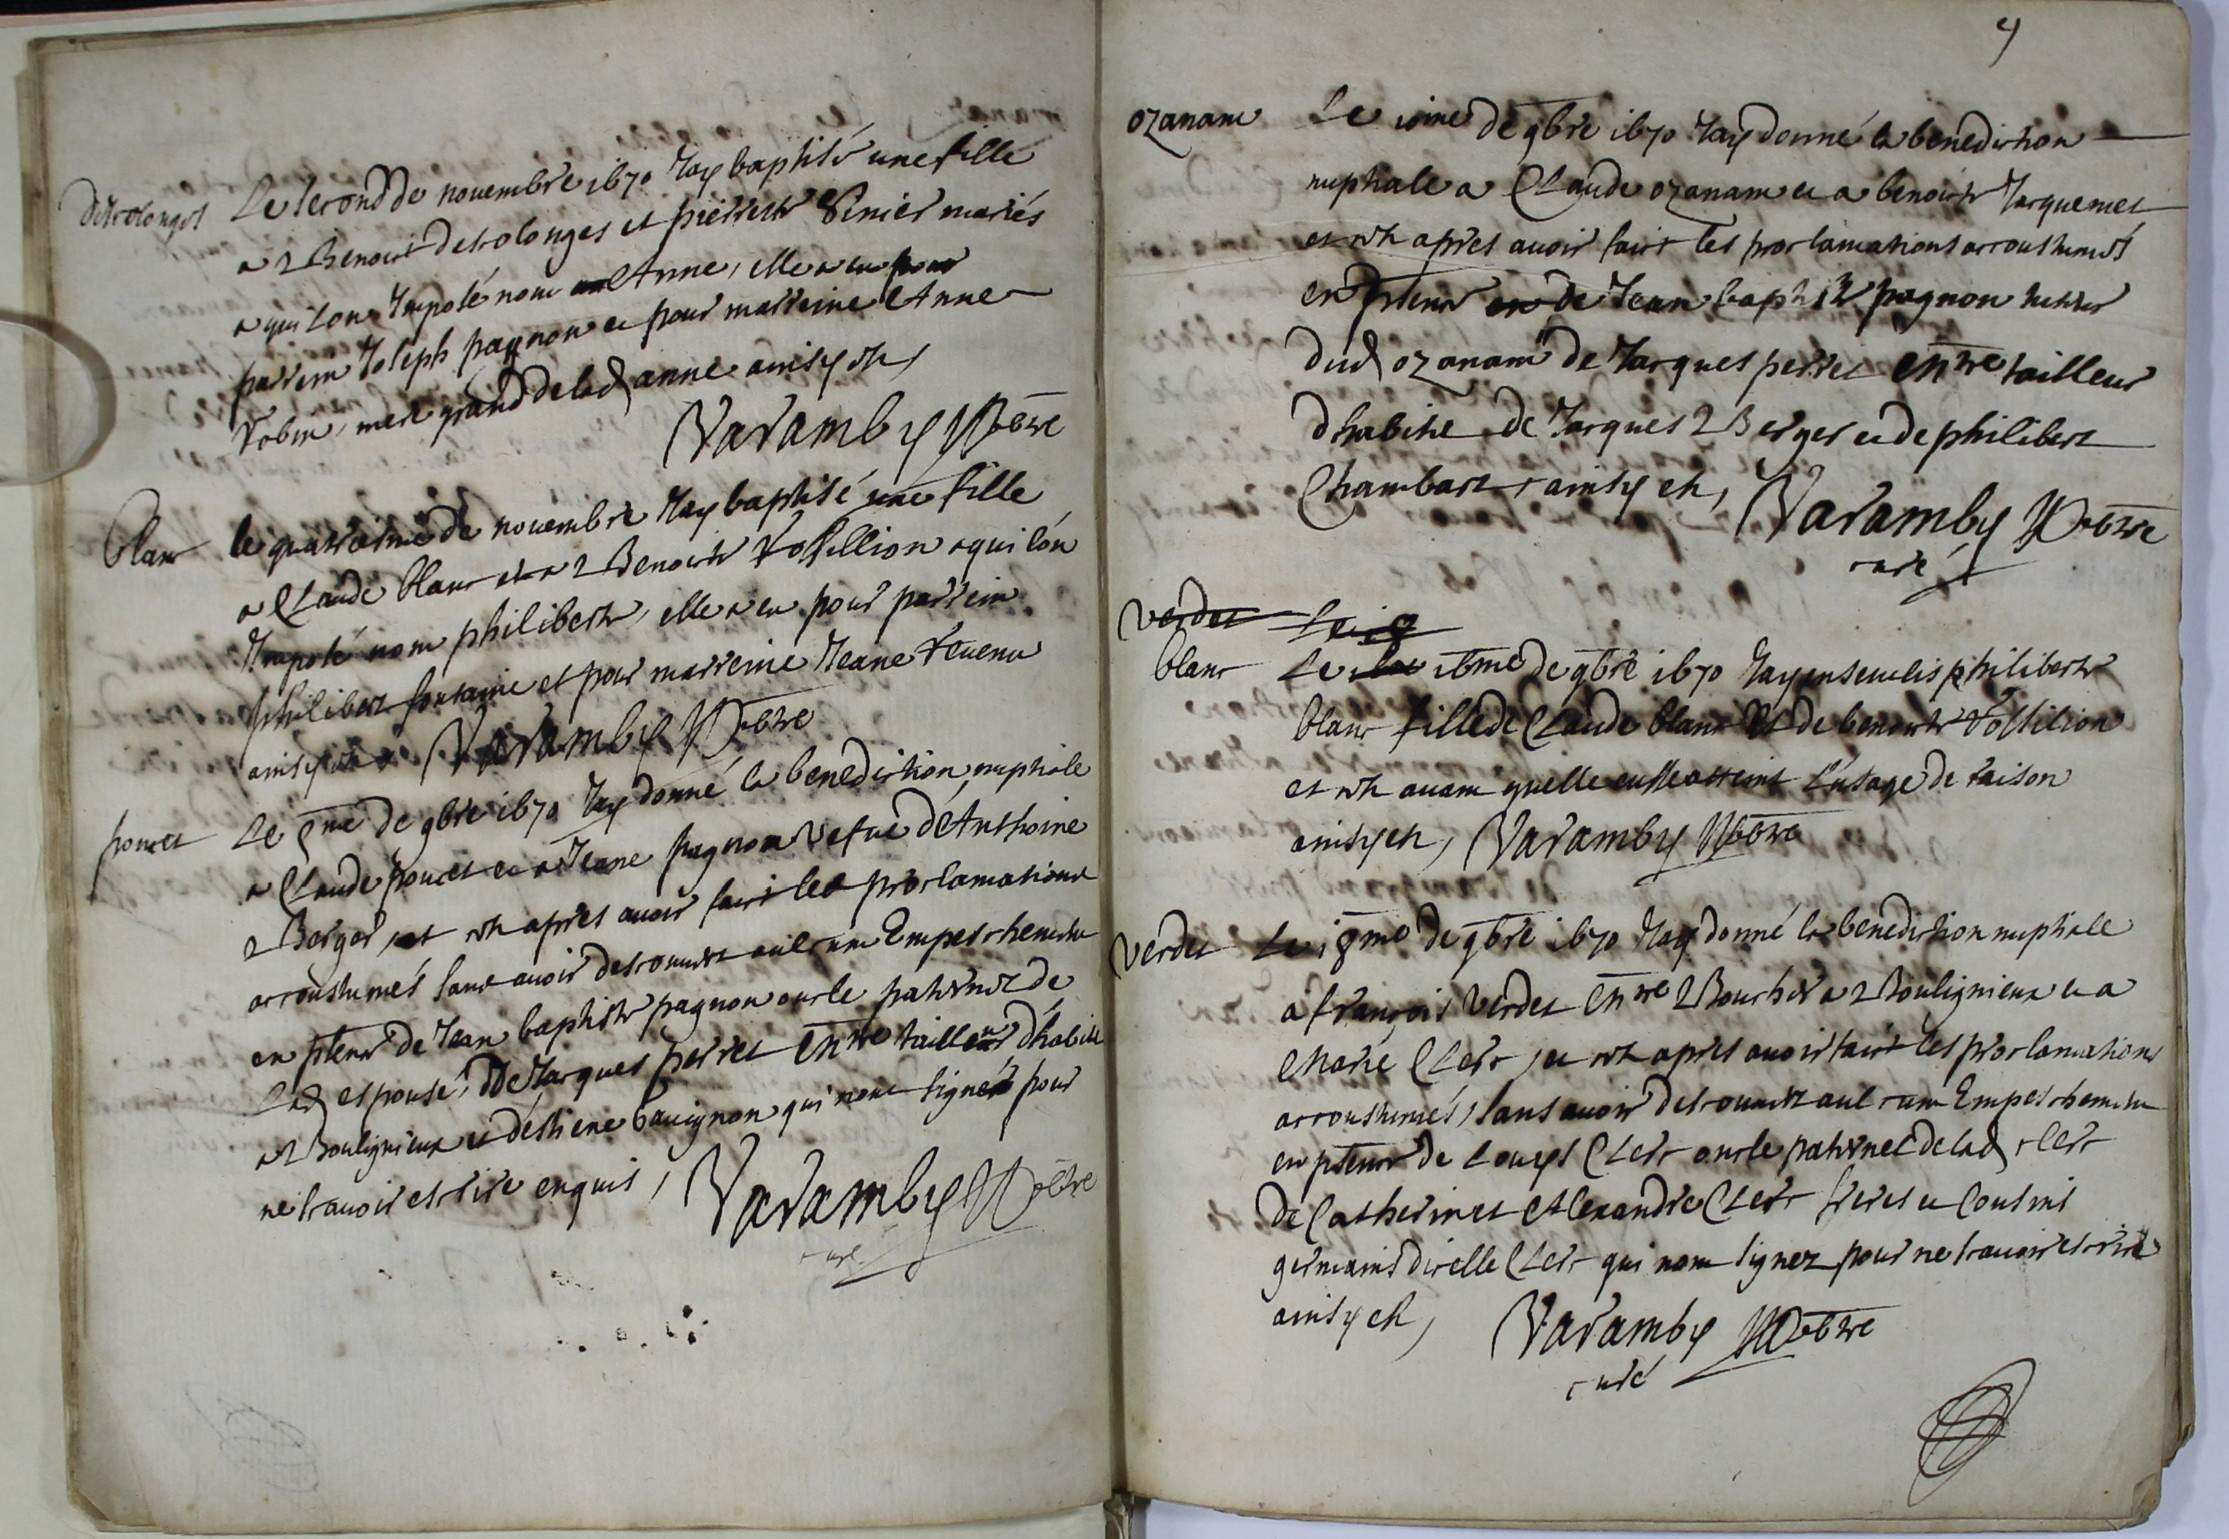 descolonges
Le second de novembre 1670 Jay baptisé une fille
a Benoit descolonges et pierrette Vinier mariés
a qui lon Imposé nom Anne, elle a eu pour
parrein Joseph pagnon et pour marreine Anne
Robin, mere grand de lad anne ainsy est,
Varamby pbtre
blanc
le quatrieme de novembre Jay baptisé une fille
a Claude blanc et a Benoiste Vossillion a qui lon
Imposé nom philiberte, elle a eu pour parrein
philibert fontaine et pour marreine Jeane Tevenu
ainsy est Varamby pbtre
poncet
Le 9me de 9bre 1670 Jay donné la benediction nuptiale
a Claude poncet et a Jeane pagnon vefue d'Anthoine
Berger, et ce apres avoir fait les proclamations
accoustumés sans avoir descouvert aulcum Empeschement
en pñce de Jean baptiste pagnon oncle paternel de
Lad espouse, de Jacques perret Mre tailleur d'habits
a Boulignieux et d'éstiene bavignon qui n'ont signés pour
ne scavoir escrire enquis, Varamby pbtre
curé
9
ozanam
Le 10me de 9bre 1670 Jay donné la benediction
nuptiale a Claude ozanam et a benoiste Jacquemet
et ce apres avoir fait les proclamations accoustumés
en pñce de Jean baptiste pagnon
dud ozanam de Jacques perret Mre tailleur
d'habits de Jacques Berger et de philibert
Chambart ainsy est, Varamby pbtre
curé
verdet Le 18
blanc
Le 16me de 9bre 1670 Jay ensevelis philiberte
blanc fille de Claude blanc Et de benoiste Vossilion
et ce avant quelle eusse atteint L'usage de raison
ainsy est, Varamby pbtre
verdet
Le 18me de 9bre 1670 Jay donné la benediction nuptiale
a françois Verdet Mre Boucher a Boulignieux et a
Marie Clerc, et ce apres avoir fait les proclamations
accoustumés, sans avoir descouvert aulcum Empeschement
en pñce de Louys Clerc oncle paternel de lad clerc
de Catherin et Alexandre Clerc freres et Cousins
germains d'icelle Clerc qui nont signez pour ne scavoir escrire
ainsy est, Varamby pbtre
curé